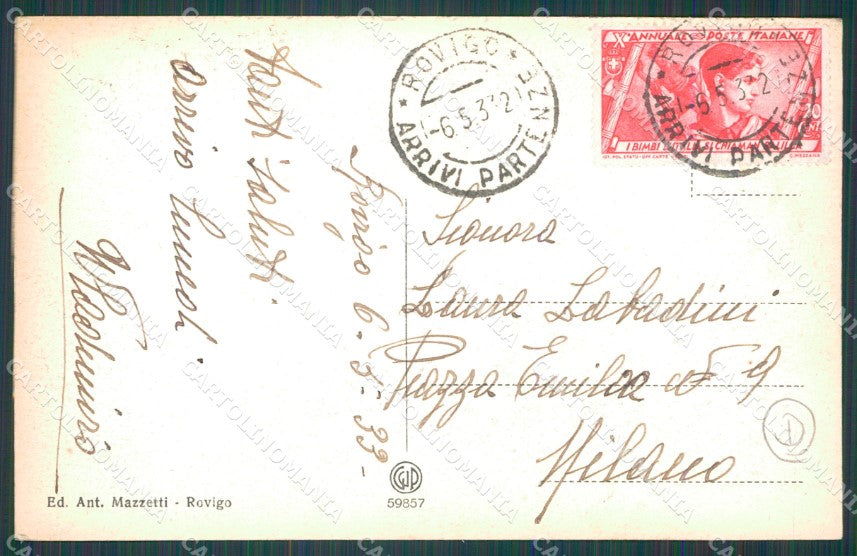 Tanti saluti
arrivo lunedì.
Rovigo 6-5-33-
ROVIGO
-6.5.3 2
ARRIVI PARTENZE
Xº ANNUALE POSTE ITALIANE
ROVIGO
-6.5.3 2
ARRIVI PARTENZE
I BIMBI D'ITALIA SI CHIAMAN BALILLA
Signora
Laura Labadini
Piazza Emilia nº 9
Milano
Ed. Ant. Mazzetti - Rovigo
59857
CARTOLINOMANIA